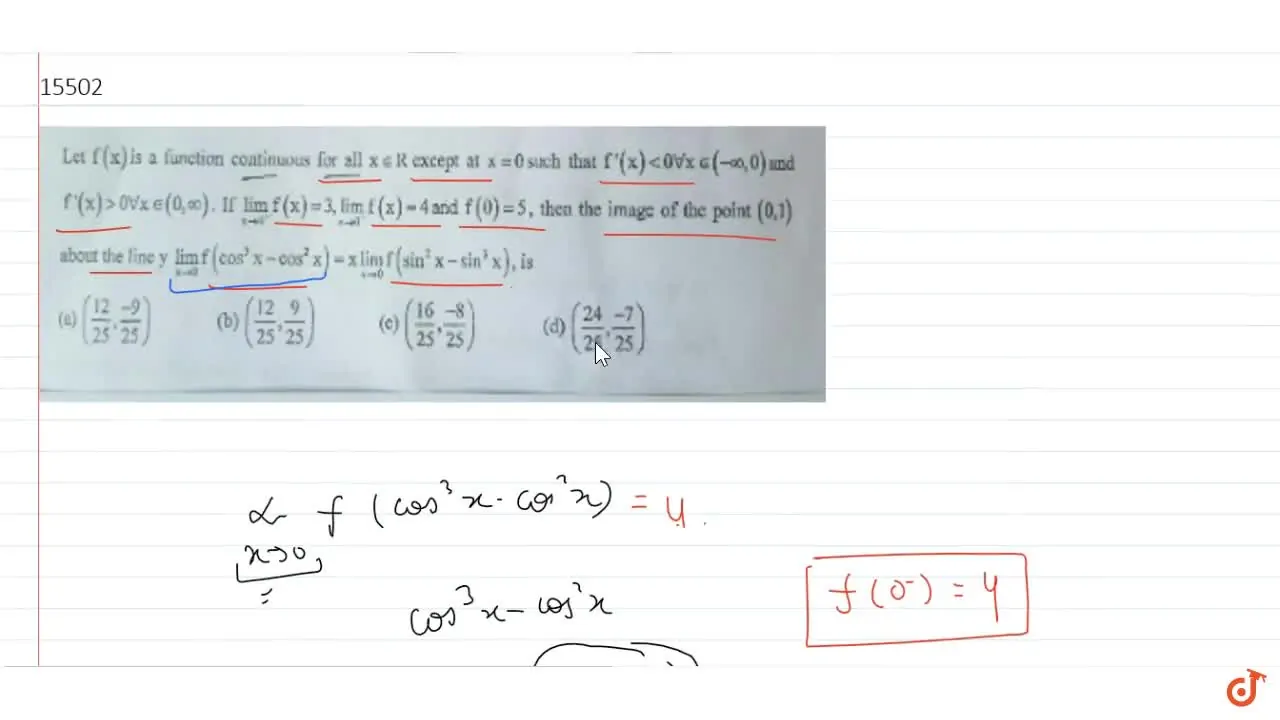 15502
Let f(x) is a function continuous for all x ∈ R except at x = 0 such that f'(x) < 0 ∀ x ∈ (-∞, 0) and
f'(x) > 0 ∀ x ∈ (0, ∞). If lim f(x) = 3, lim f(x) = 4 and f(0) = 5, then the image of the point (0,1)
about the line y lim f(cos³ x - cos² x) = x lim f(sin² x - sin³ x), is
x→0 x→0
(a) (12/25, -9/25) (b) (12/25, 9/25) (c) (16/25, -8/25) (d) (24/25, -7/25)
f (cos³ x - cos² x) = 4.
x→0
cos³ x - cos² x
f(0⁻) = 4